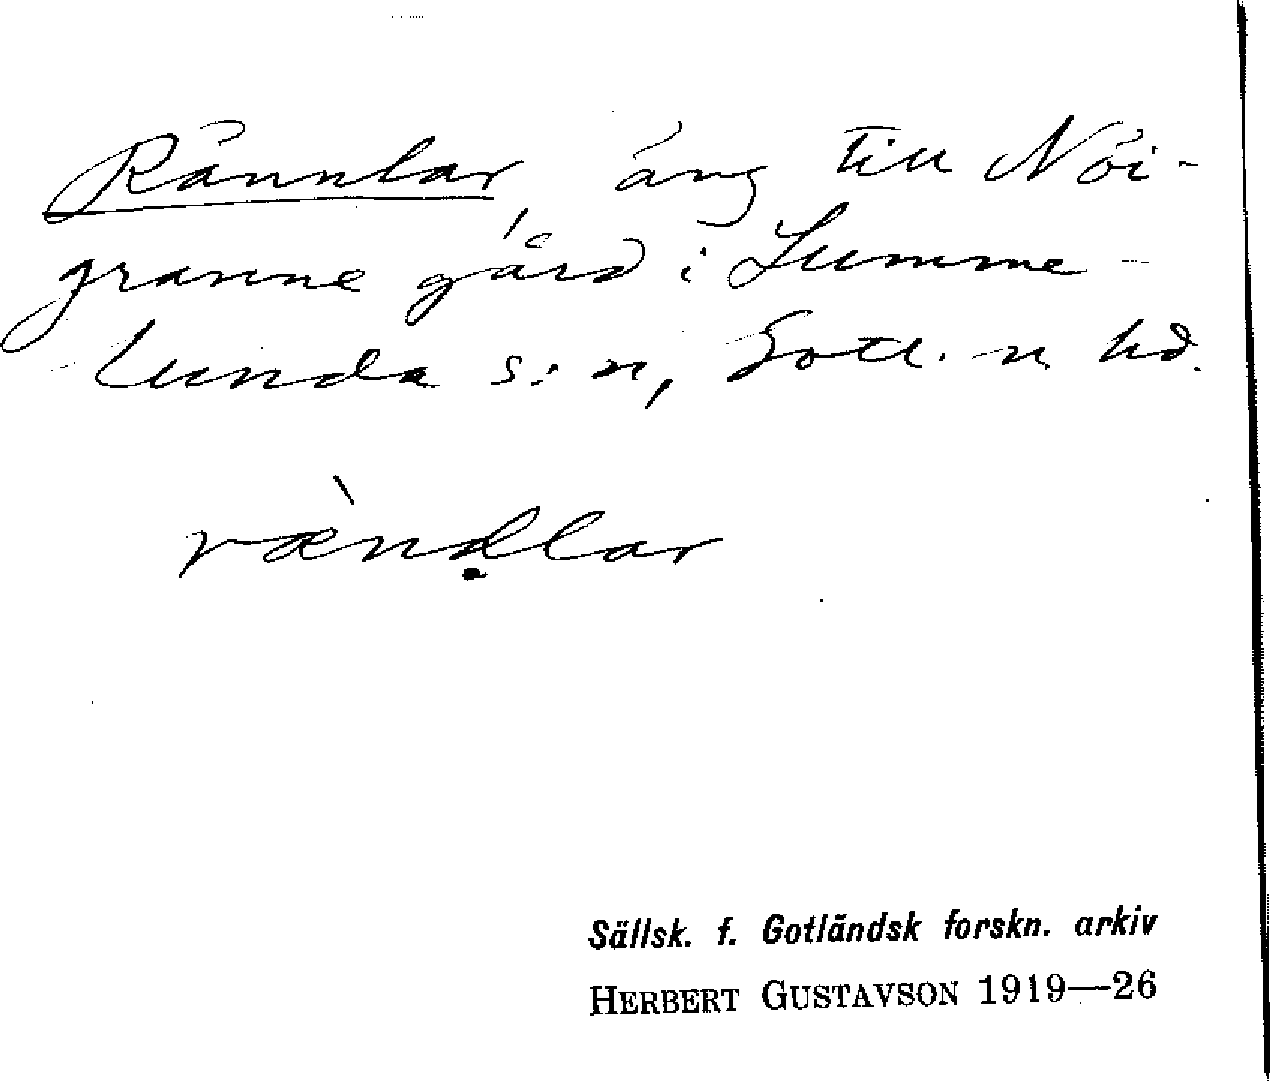 Rännlar, äng till Nöi-
granne gård i Lumme-
lunda s:n, Gotl. n hd.
rændlar
Sällsk. f. Gotländsk forskn. arkiv
HERBERT GUSTAVSON 1919—26